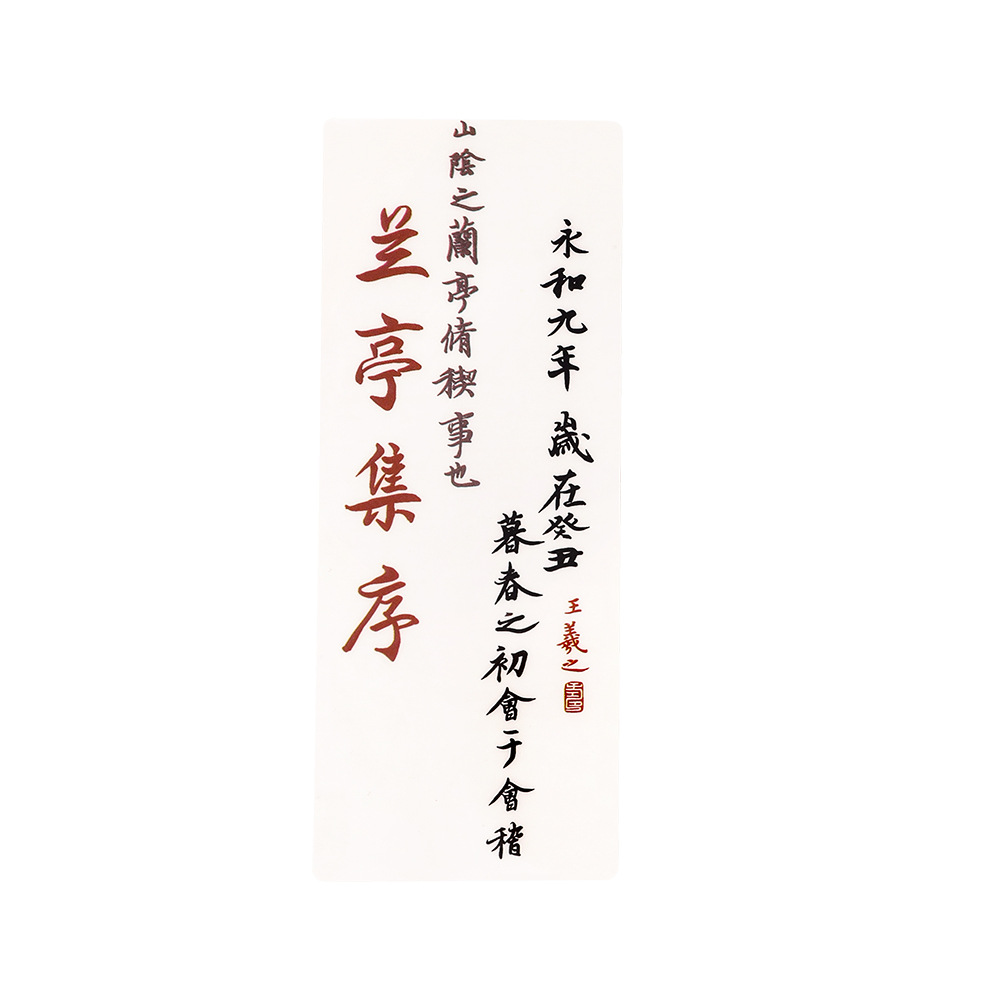 永和九年歲在癸丑
王羲之
暮春之初會于會稽
山陰之蘭亭脩稧事也
兰亭集序